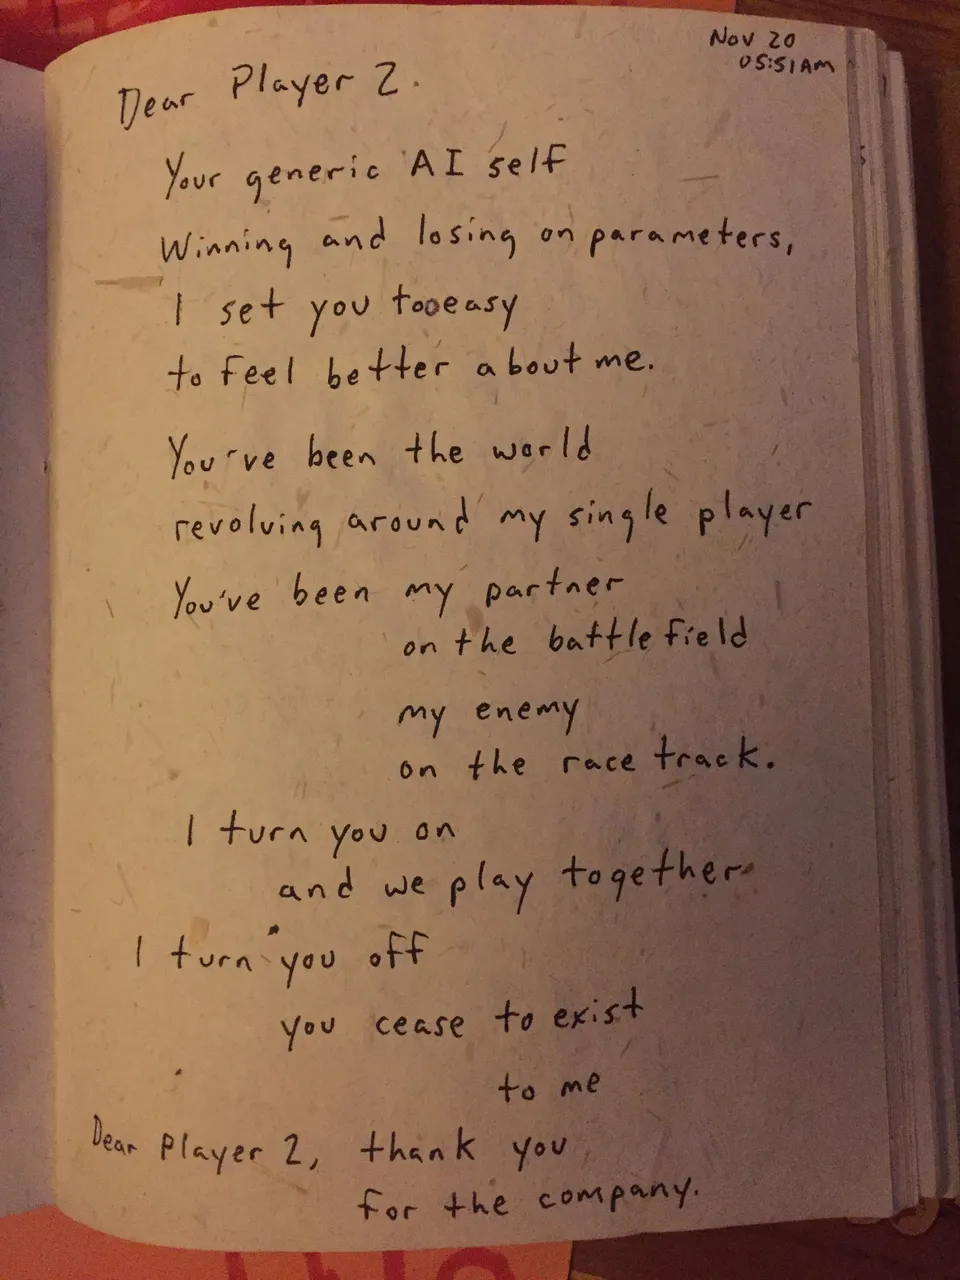 Nov 20
05:51AM
Dear Player 2.
Your generic AI self
Winning and losing on parameters,
I set you too easy
to feel better about me.
You've been the world
revolving around my single player
You've been my partner
on the battlefield
my enemy
on the race track.
I turn you on
and we play together
I turn you off
you cease to exist
to me
Dear Player 2, thank you
for the company.